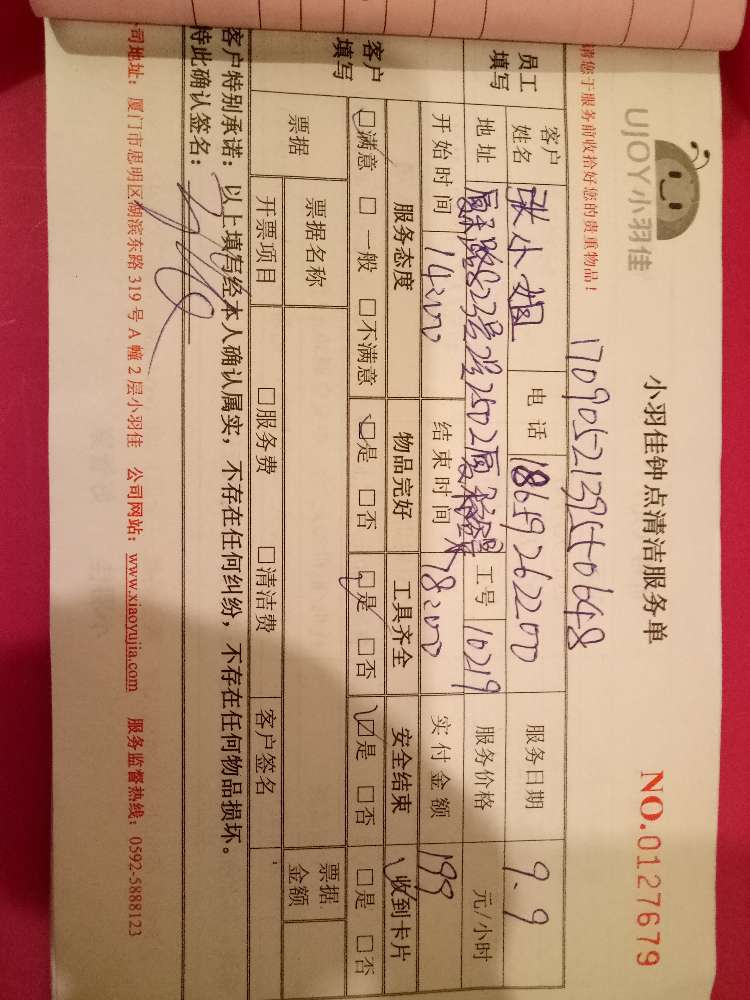 UJOY小羽佳
小羽佳钟点清洁服务单
NO.0127679
请您于服务前收拾好您的贵重物品！
员工填写
客户姓名 张小姐 电话 18659262200 服务日期 9.9
地址 工号 10219 服务价格 元/小时
开始时间 14:00 结束时间 18:00 实付金额 199
客户填写
服务态度 物品完好 工具齐全 安全结束 收到卡片
□满意 □一般 □不满意 □是 □否 □是 □否 □是 □否 □是 □否
票据 票据名称 票据金额
开票项目 □服务费 □清洁费 客户签名
客户特别承诺：以上填写经本人确认属实，不存在任何纠纷，不存在任何物品损坏。
特此确认签名：
司地址：厦门市思明区湖滨东路 319 号 A 幢 2 层小羽佳 公司网站：www.xiaoyujia.com 服务监督热线：0592-5888123